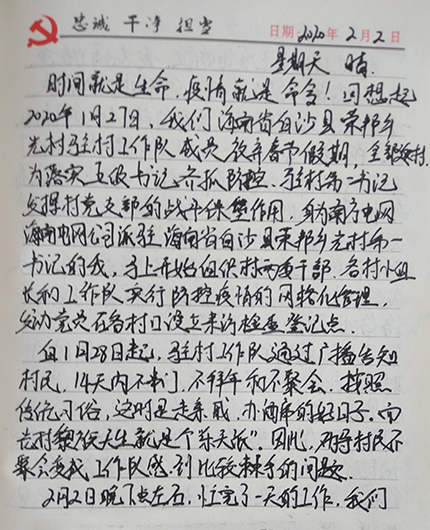 忠诚 干净 担当
日期：2020年2月2日
星期天 晴
时间就是生命，疫情就是命令！回想起
2020年1月27日，我们海南省白沙县荣邦乡
光村驻村工作队成员放弃春节假期，全部返村，
为落实五级书记齐抓防控，驻村第一书记
发挥村党支部的战斗保堡作用，身为南方电网
海南电网公司派驻海南省白沙县荣邦乡光村第一
书记的我，马上开始组织村两委干部、各村小组
长和工作队实行防控疫情的网格化管理，
发动党员在各村口设立来访检查登记点。
自1月28日起，驻村工作队通过广播告知
村民，14天内不串门、不拜年和不聚会。按照
传统习俗，这时是走亲戚、办酒席的好日子，而
光村黎族天生就是个"乐天派"。因此，劝导村民不
聚会变成工作队感到比较棘手的问题。
2月2日晚7点左右，忙完了一天的工作，我们